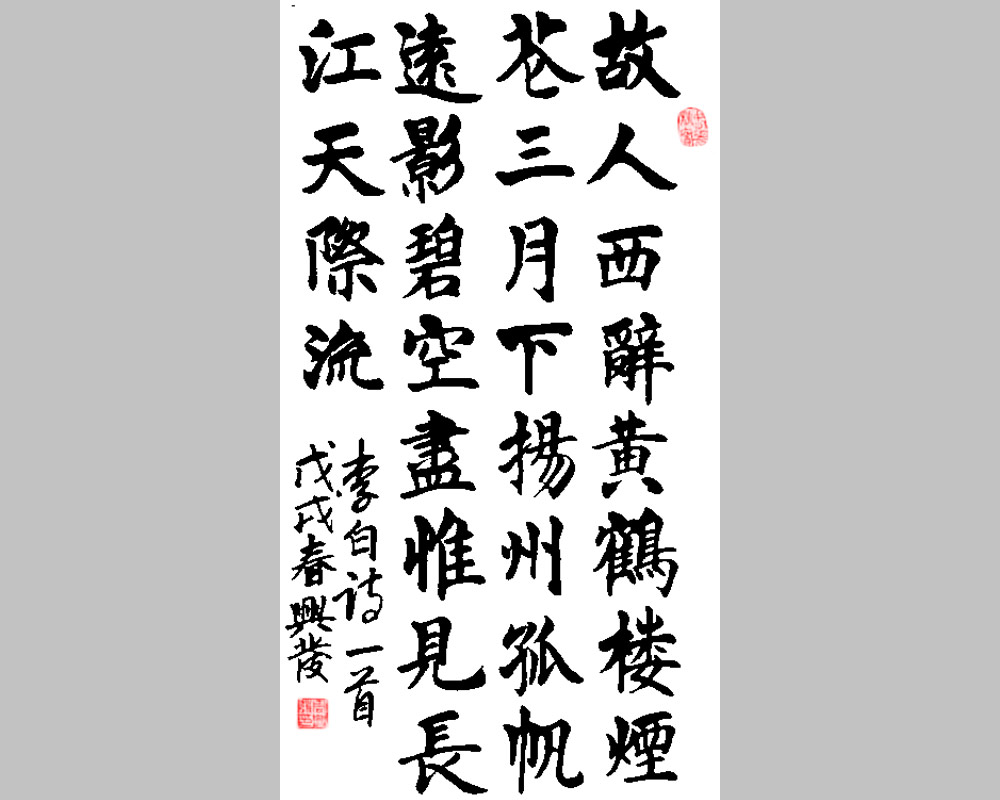 故人西辭黄鶴楼煙
花三月下揚州孤帆
遠影碧空盡惟見長
江天際流
李白诗一首
戊戌春興發